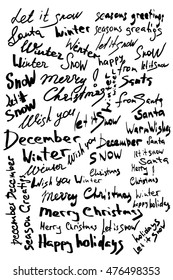 Let it snow seasons greetings
Santa Winter seasons greetigs
Wish Winter let it snow
Winter Snow happy Snow
Snow merry from Santa
let it Snow Christmas from Santa
Wish you let it Snow Santa
December Wish you December Warm Wishes
Winter Snow Santa
Winter Let it snow
Wish you Santa merry
December December Christmas
Seasons Greetings merry Christmas Winter
merry Christmas happy holidays
Winter Snow Christmas let it snow
Happy holidays holidays let it snow
476498353